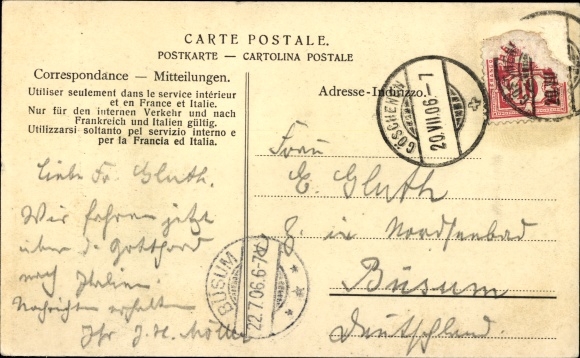 CARTE POSTALE.
POSTKARTE — CARTOLINA POSTALE
Correspondance — Mitteilungen.
Utiliser seulement dans le service intérieur
et en France et Italie.
Nur für den internen Verkehr und nach
Frankreich und Italien gültig.
Utilizzarsi soltanto pel servizio interno e
per la Francia ed Italia.
Liebe Fr. Gluth.
Wir fahren jetzt
über d. Gotthard
nach Italien.
Nachrichten erhalten
Ihr J. H.
BÜSUM
22.7.06.6-7
Adresse-Indirizzo.
GÖSCHENEN
20.VII.06.-7
20.VII
Frau
E. Gluth
z. in Nordseebad
Büsum
Deutschland.